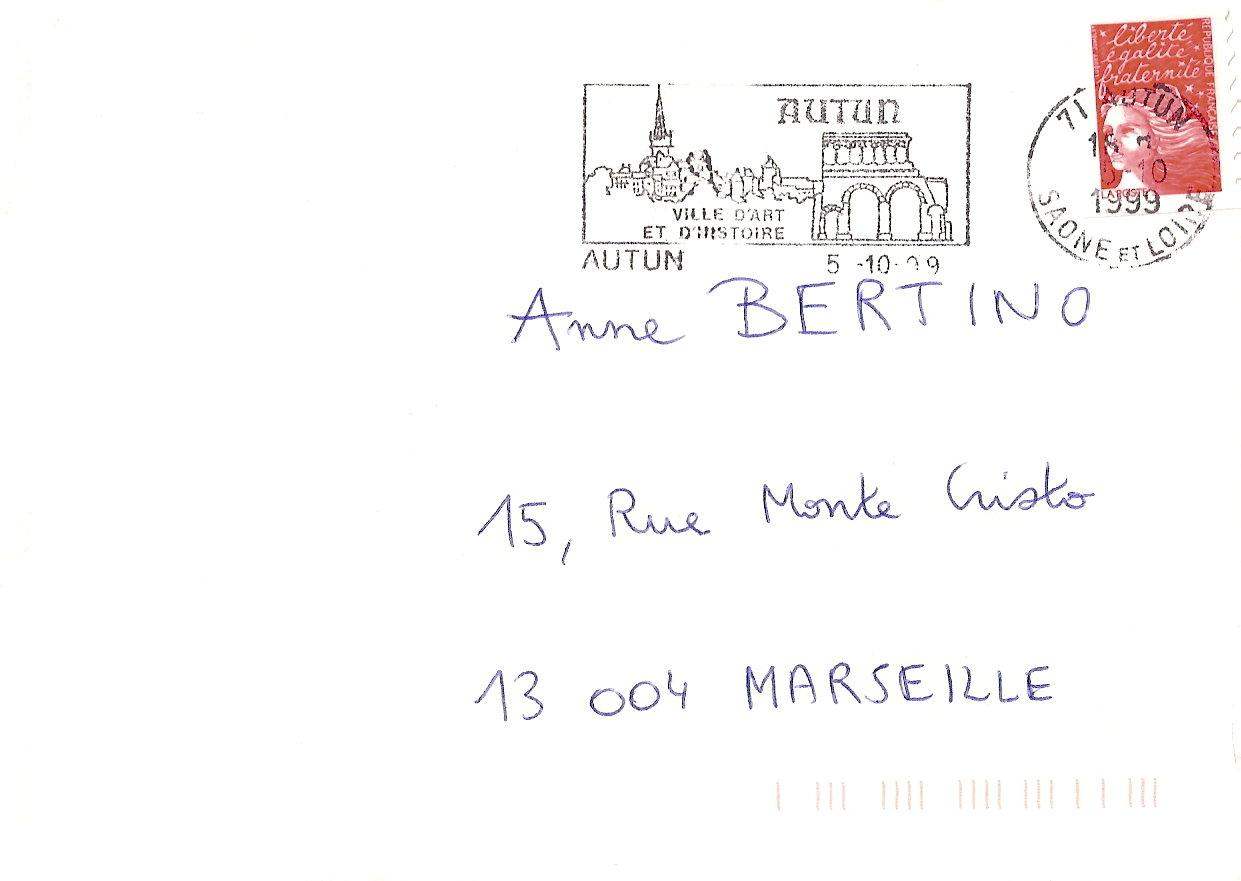 liberté
égalité
fraternité
RÉPUBLIQUE FRANÇAISE
LA POSTE
AUTUN
VILLE D'ART
ET D'HISTOIRE
AUTUN 5 -10-99
71 AUTUN
5-10
1999
SAONE ET LOIRE
Anne BERTINO
15, Rue Monte Cristo
13 004 MARSEILLE